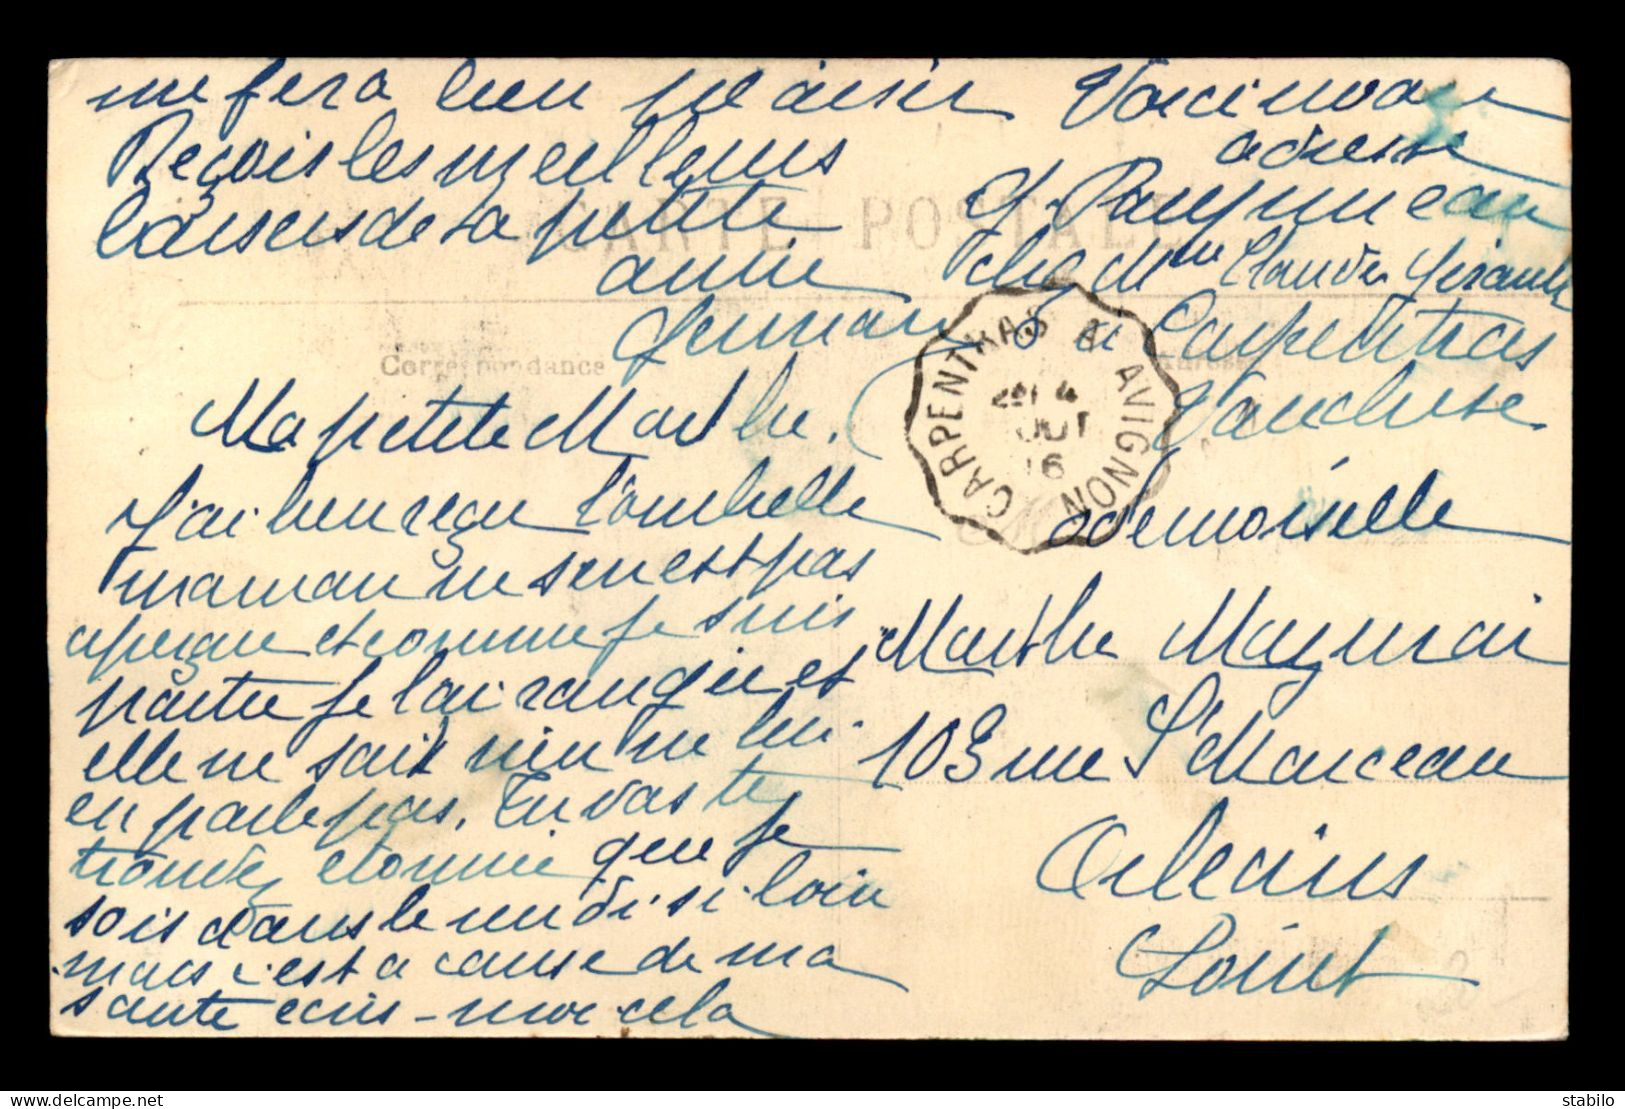 Ma petite Marthe.
J'ai bien reçu l'ombrelle
maman ne s'en est pas
aperçue et comme je suis
partie je l'ai rangée et
elle ne sait rien ne lui
en parle pas. Tu vas te
trouvée etonnée que je
sois dans le midi si loin
mais c'est a cause de ma
santé ecris-moi cela
me fera bien plaisir
Reçois les meilleurs
baisers de ta petite
amie
Germaine
Voici mon
adresse
G.
chez Mme Claude
à Carpentras
Vaucluse
CARTE POSTALE
Correspondance
Adresse
CARPENTRAS A AVIGNON
4
16
ademoiselle
Marthe
103 rue St Marceau
Orleans
Loiret
delcampe.net
stabilo